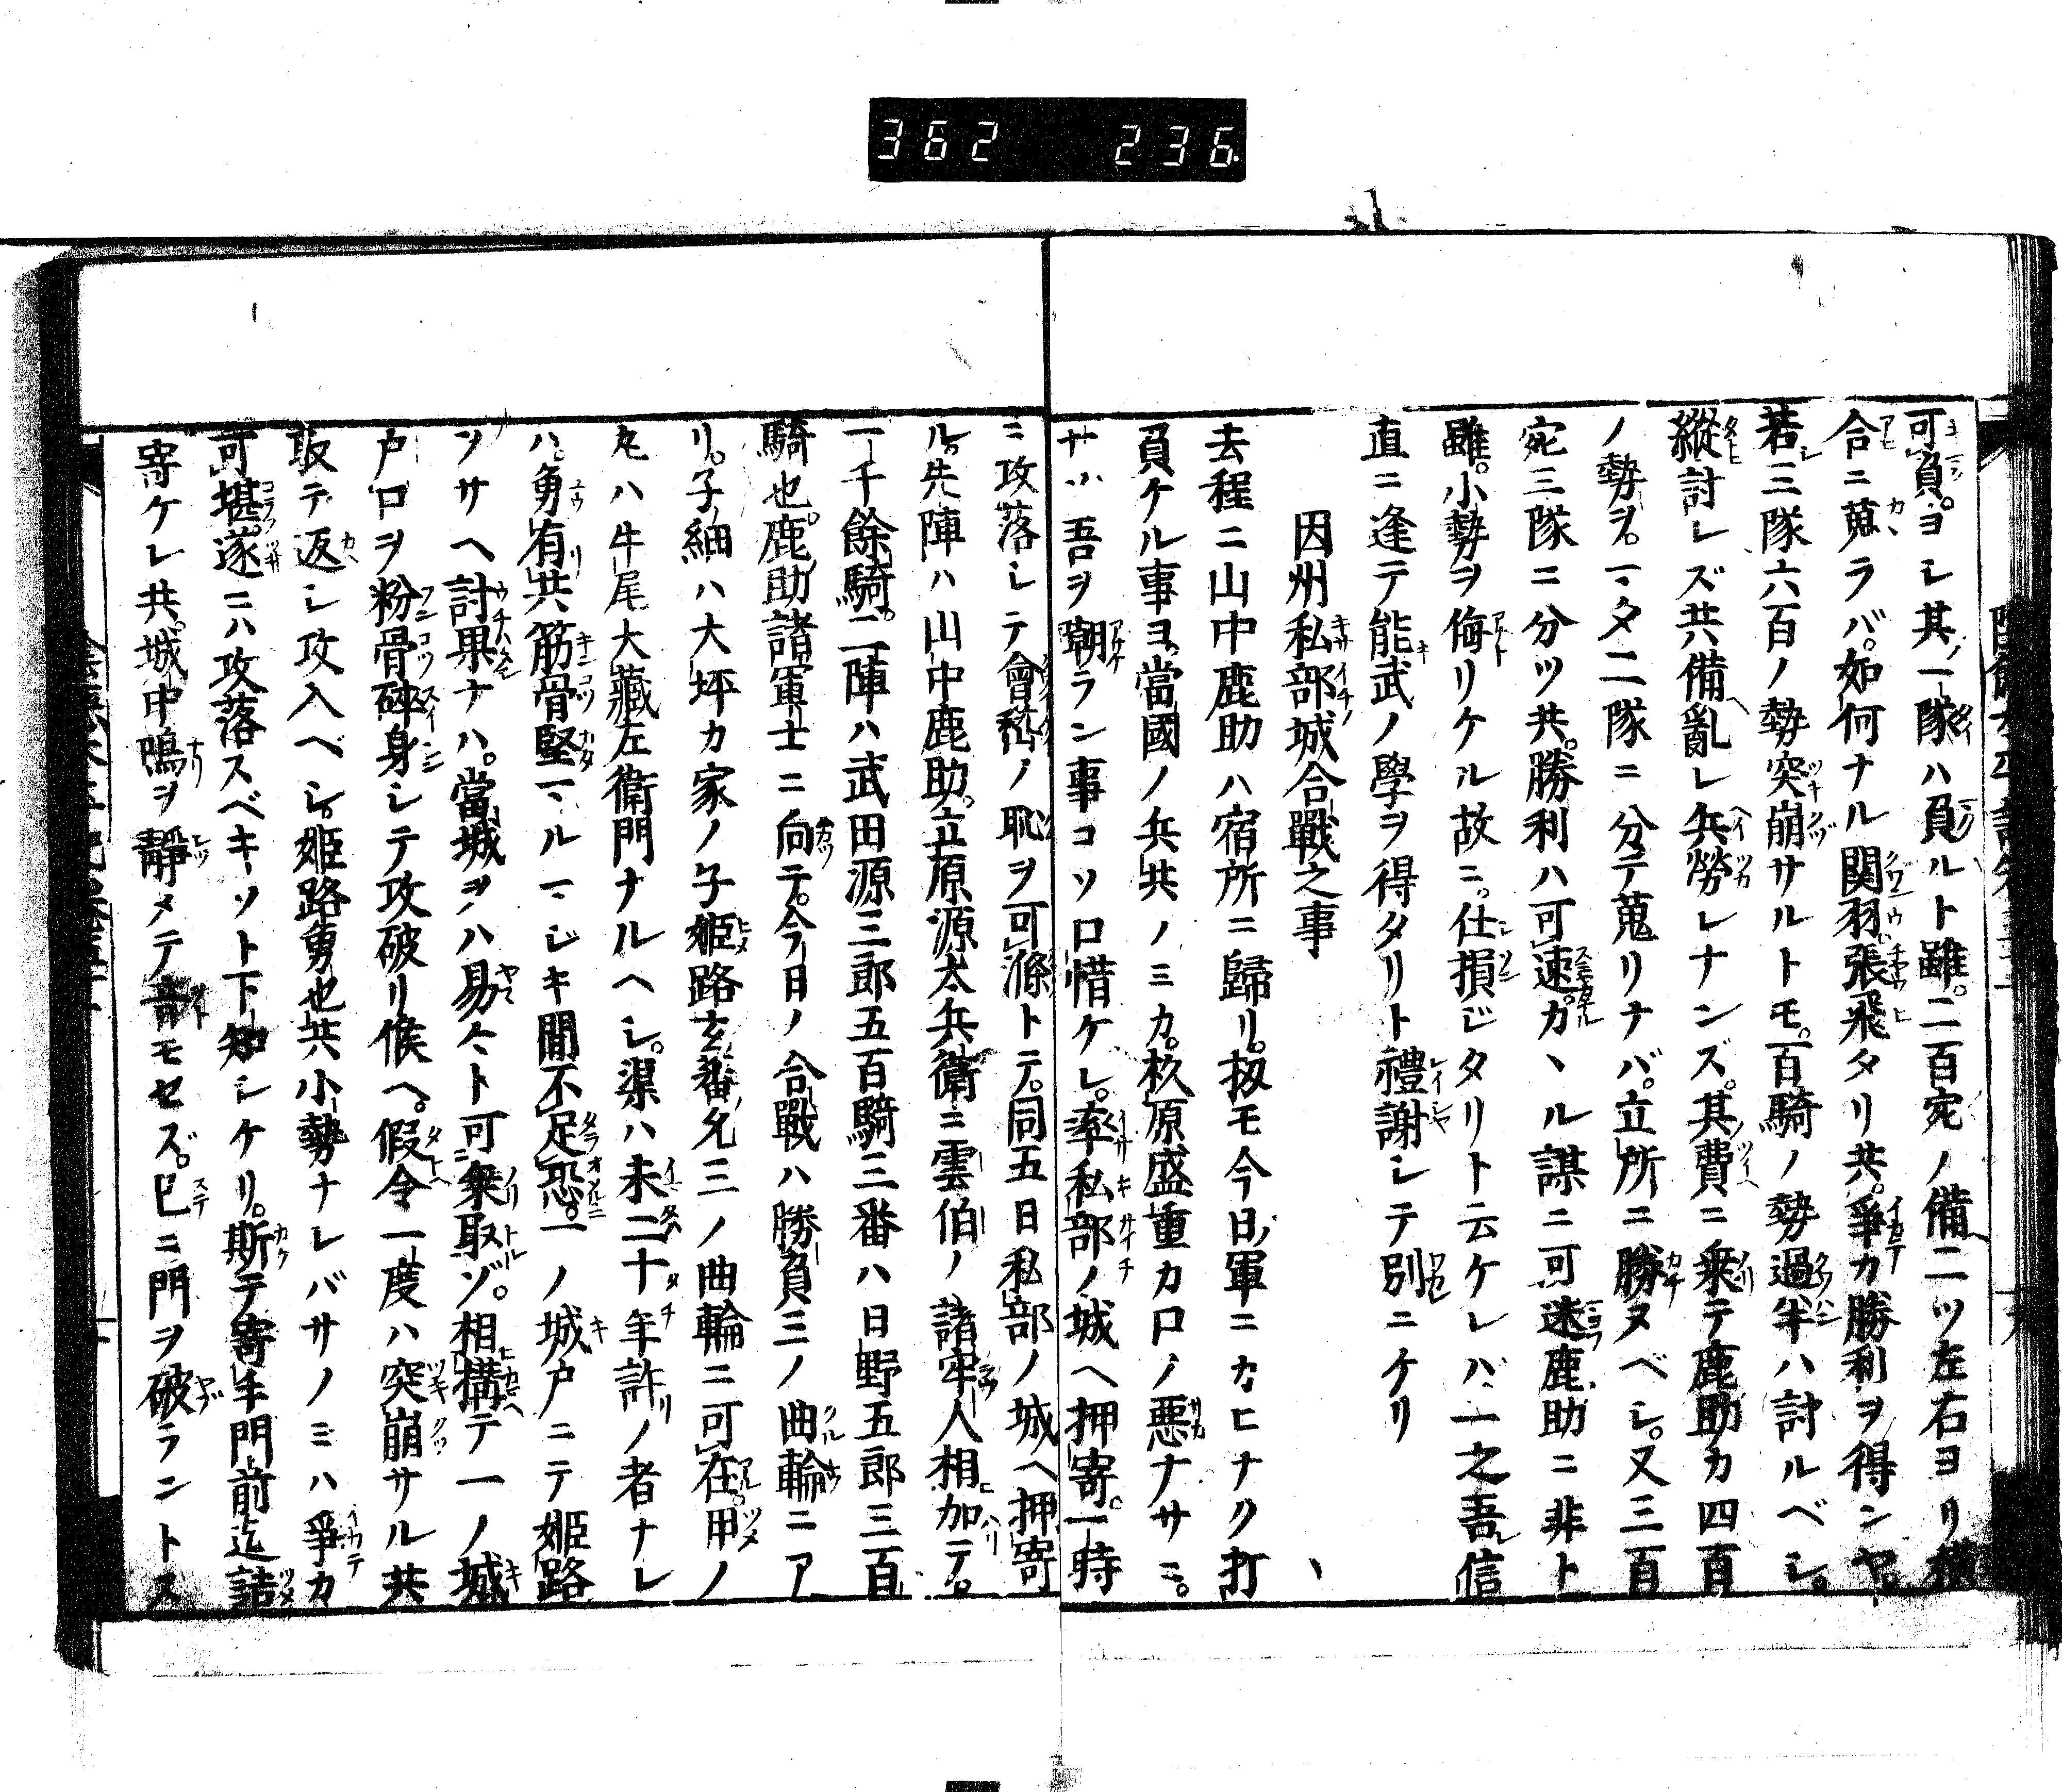 362 236
可負。ヨシ其一隊ハ負ルト雖。二百宛ノ備二ツ左右ヨリ横
合ニ蒐ラバ。如何ナル関羽張飛タリ共。爭カ勝利ヲ得ンヤ。
若三隊六百ノ勢突崩サルトモ。百騎ノ勢過半ハ討ルベシ。
縱討レズ共備亂レ兵勞レナンズ。其費ニ乗テ鹿助カ四百
ノ勢ヲ。一タ二隊ニ分テ蒐リナバ。立所ニ勝ヌベシ。又三百
宛三隊ニ分ツ共。勝利ハ可速。カヽル謀ニ可迷鹿助ニ非ト
雖。小勢ヲ侮リケル故ニ。仕損ジタリト云ケレバ、一之吾信
直ニ逢テ能武ノ學ヲ得タリト禮謝シテ別ニケリ
因州私部城合戰之事
去程ニ山中鹿助ハ宿所ニ歸リ。扨モ今日ノ軍ニカヒナク打
負ケル事ヨ。當國ノ兵共ノミカ。杉原盛重カ口ノ悪ナサニ。
サハ吾ヲ嘲ラン事コソ口惜ケレ。率私部ノ城ヘ押寄。一時
ニ攻落シテ會稽ノ恥ヲ可滌トテ。同五日私部ノ城ヘ押寄
ル。先陣ハ山中鹿助。立原源太兵衛ニ雲伯ノ諸牢人相加テ。
一千餘騎。二陣ハ武田源三郎五百騎三番ハ日野五郎三百
騎也。鹿助諸軍士ニ向テ。今日ノ合戰ハ勝負三ノ曲輪ニア
リ。子細ハ大坪カ家ノ子姫路玄番允三ノ曲輪ニ可在。甲ノ
丸ハ牛尾大藏左衛門ナルヘシ。渠ハ未二十年許ノ者ナレ
ハ。勇有共筋骨堅マルマジキ間不足恐。一ノ城戸ニテ姫路
ヲサヘ討果ナハ。當城ヲハ易々ト可乗取ゾ。相構テ一ノ城
戸口ヲ粉骨砕身シテ攻破リ候ヘ。假令一度ハ突崩サル共
取テ返シ攻入ヘシ。姫路勇也共小勢ナレバサノミハ爭カ
可堪。遂ニハ攻落スベキソト下知シケリ。斯テ寄手門前迄詰
寄ケレ共。城中鳴ヲ靜メテ音モセズ。已ニ門ヲ破ラントス